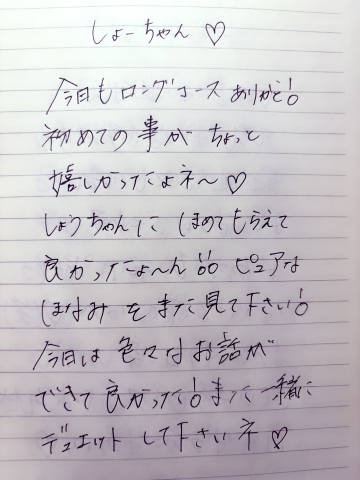 しょーちゃん♡
今日もロングコースありがと!
初めての事がちょっと
嬉しかったよネ〜♡
しょうちゃんにほめてもらえて
良かったよ〜ん!!! ピュアな
ほなみをまた見て下さい!
今日は色々なお話が
できて良かった!また一緒に
デュエットして下さいネ♡